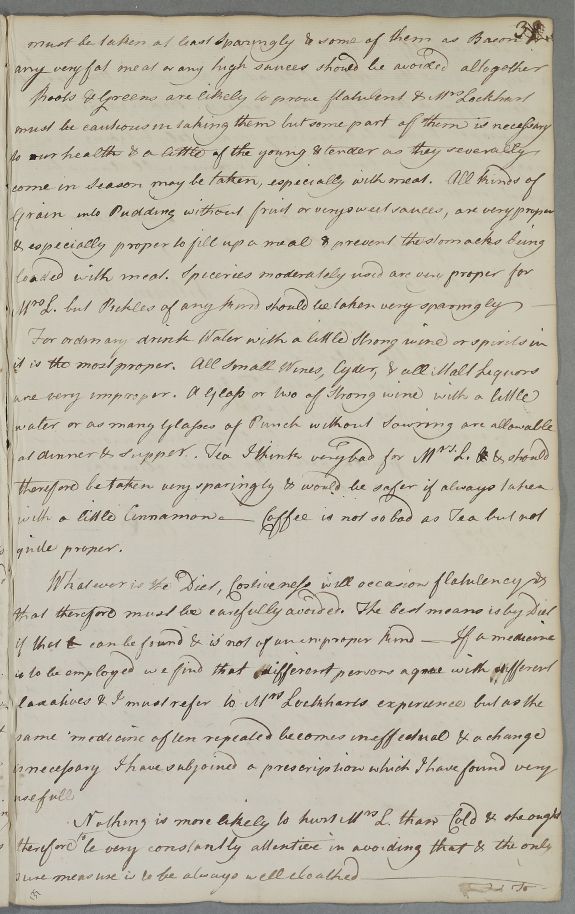 3
must be taken at least sparingly & some of them as Bacon
any very fat meat or any high sauces should be avoided altogether
Roots & Greens are likely to prove flatulent & Mrs Lockhart
must be cautious in taking them but some part of them is necessary
to our health & a little of the young & tender as they severally
come in Season may be taken, especially with meat. All kinds of
Grain into Pudding without fruit or very sweet sauces, are very proper
& especially proper to fill up a meal & prevent the stomacks being
loaded with meat. Spiceries moderately used are very proper for
Mrs L. but Pickles of any kind should be taken very sparingly —
For ordinary drink Water with a little Strong wine or spirits in
it is the most proper. All Small Wines, Cyder, & all Malt Liquors
are very improper. A Glass or two of Strong wine with a little
water or as many Glasses of Punch without Souring are allowable
at dinner & supper. Tea I think very bad for Mrs. L. & should
therefore be taken very sparingly & would be safer if always taken
with a little Cinnamon — Coffee is not so bad as Tea but not
quite proper.
Whatever is the Diet, Costiveness will occasion flatulency &
that therefore must be carefully avoided. The best means is by Diet
if that can be found & is not of an improper kind — If a medicine
is to be employed we find that different persons agree with different
laxatives & I must refer to Mrs Lockharts experience but as the
same medicine often repeated becomes ineffectual & a change
is necessary I have subjoined a prescription which I have found very
usefull
Nothing is more likely to hurt Mrs L. than Cold & she ought
therefore to be very constantly attentive in avoiding that & the only
sure measure is to be always well cloathed —
To